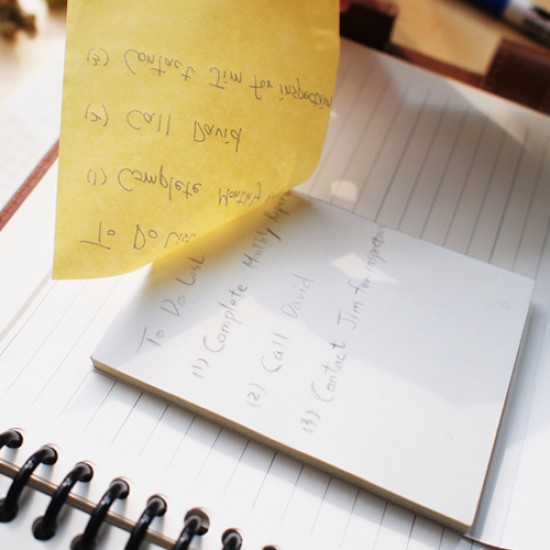 (3) Contact Jim for inspection
(2) Call David
(1) Complete Monthly
To Do List
To Do List
(1) Complete Monthly
(2) Call David
(3) Contact Jim for inspection